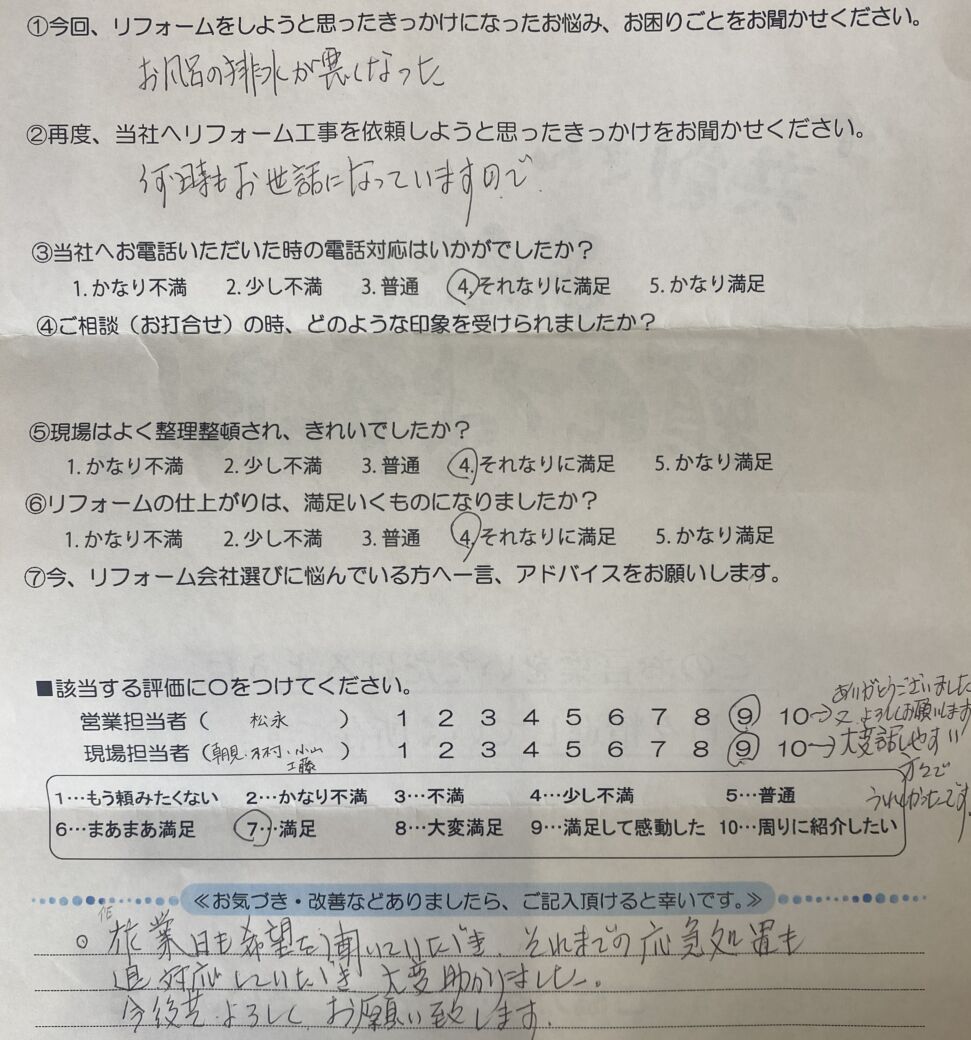 ①今回、リフォームをしようと思ったきっかけになったお悩み、お困りごとをお聞かせください。
お風呂の排水が悪くなった
②再度、当社へリフォーム工事を依頼しようと思ったきっかけをお聞かせください。
何時もお世話になっていますので
③当社へお電話いただいた時の電話対応はいかがでしたか？
1. かなり不満 2. 少し不満 3. 普通 4. それなりに満足 5. かなり満足
④ご相談（お打合せ）の時、どのような印象を受けられましたか？
⑤現場はよく整理整頓され、きれいでしたか？
1. かなり不満 2. 少し不満 3. 普通 4. それなりに満足 5. かなり満足
⑥リフォームの仕上がりは、満足いくものになりましたか？
1. かなり不満 2. 少し不満 3. 普通 4. それなりに満足 5. かなり満足
⑦今、リフォーム会社選びに悩んでいる方へ一言、アドバイスをお願いします。
■該当する評価に〇をつけてください。
営業担当者（ 松永 ） 1 2 3 4 5 6 7 8 9 10→ ありがとうございました
又、よろしくお願いします
現場担当者（朝見・木村・小山 工藤 ） 1 2 3 4 5 6 7 8 9 10→ 大変話しやすい
方々で
うれしかったです。
1…もう頼みたくない 2…かなり不満 3…不満 4…少し不満 5…普通
6…まあまあ満足 7…満足 8…大変満足 9…満足して感動した 10…周りに紹介したい
≪お気づき・改善などありましたら、ご記入頂けると幸いです。≫
作
○ 作業日も希望を聞いていただき、それまでの応急処置も
対応していただき 大変助かりました。
今後共よろしくお願い致します.